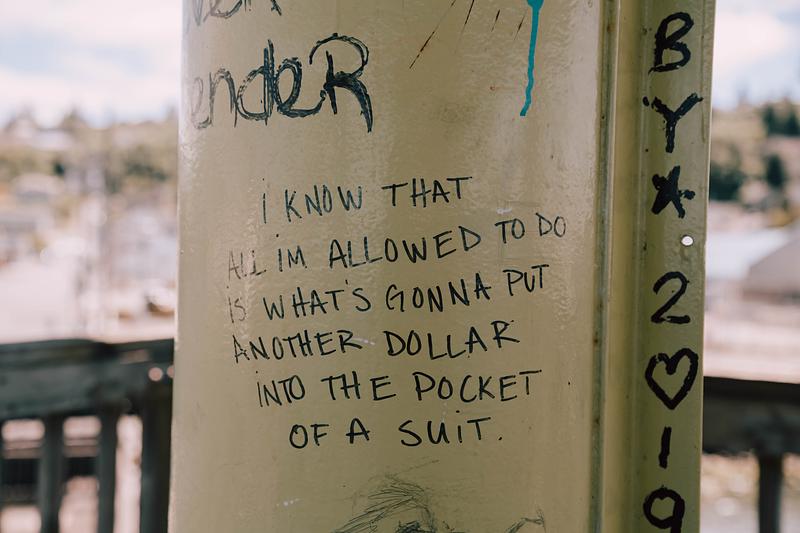 endeR
I KNOW THAT
ALL IM ALLOWED TO DO
IS WHAT'S GONNA PUT
ANOTHER DOLLAR
INTO THE POCKET
OF A SUIT.
BY★
2♡19